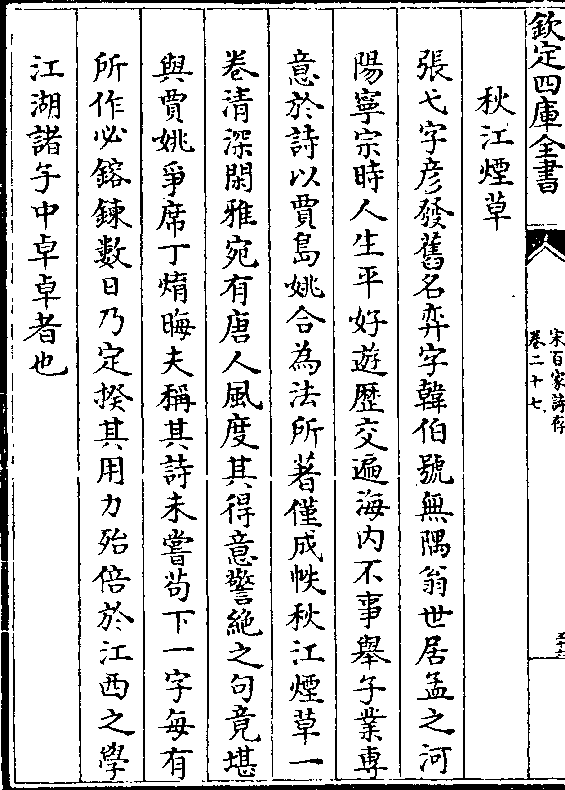 欽定四庫全書
宋百家詩存
卷二十七
秋江煙草
張弋字彥發舊名弈字韓伯號無隅翁世居孟之河
陽寧宗時人生平好遊歷交遍海内不事舉子業專
意於詩以賈島姚合為法所著僅成帙秋江煙草一
卷清深閑雅宛有唐人風度其得意警絶之句竟堪
與賈姚爭席丁焴晦夫稱其詩未嘗茍下一字每有
所作必鎔鍊數日乃定揆其用力殆倍於江西之學
江湖諸子中卓卓者也